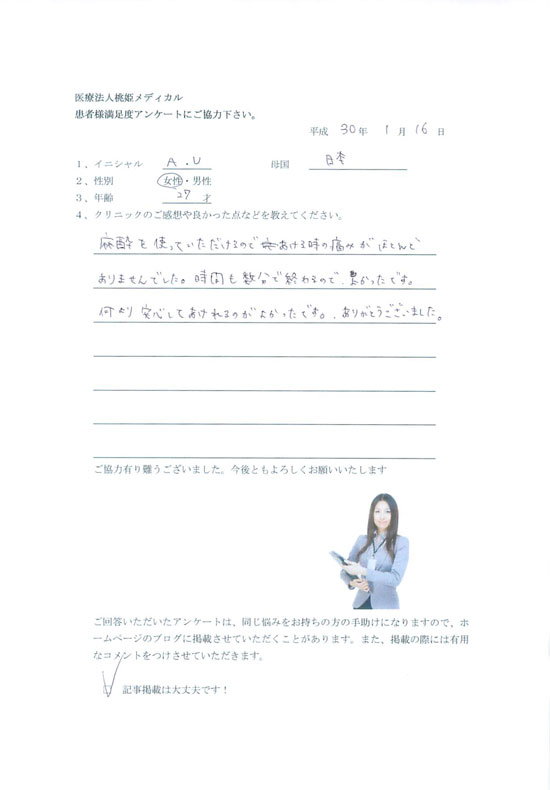 医療法人桃姫メディカル
患者様満足度アンケートにご協力下さい。
平成 30 年 1 月 16 日
1、イニシャル A.U 母国 日本
2、性別 女性・男性
3、年齢 27 才
4、クリニックのご感想や良かった点などを教えてください。
麻酔を使っていただけるので あける時の痛みがほとんど
ありませんでした。時間も数分で終わるので、良かったです。
何より安心してあけれるのがよかったです。ありがとうございました。
ご協力有り難うございました。今後ともよろしくお願いいたします
ご回答いただいたアンケートは、同じ悩みをお持ちの方の手助けになりますので、ホ
ームページのブログに掲載させていただくことがあります。また、掲載の際には有用
なコメントをつけさせていただきます。
記事掲載は大丈夫です！